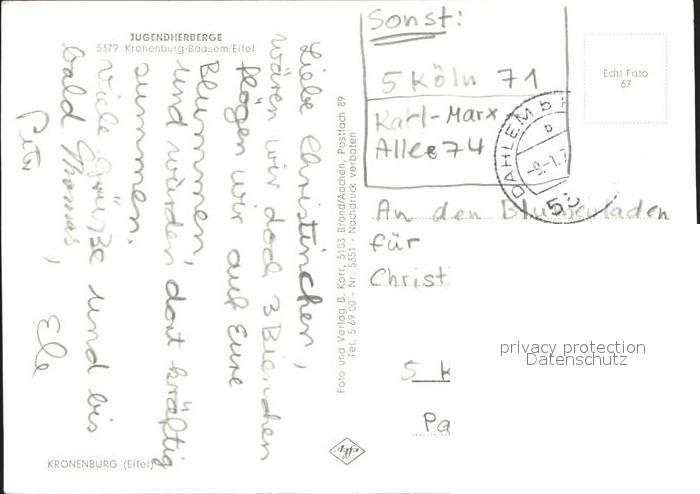 JUGENDHERBERGE
5379 Kronenburg-Baasem/Eifel
Liebe Christinchen,
wären wir doch 3 Bienchen
flögen wir auf Eure
Blummen,
und würden dort kräftig
summen.
Viele Grüße und bis
bald Thomas, Ele
Peter
KRONENBURG (Eifel)
Foto und Verlag B. Korr, 5103 Brand/Aachen, Postfach 89
Tel. 5 69 00 - Nr. 5351 - Nachdruck verboten
Agfa
Sonst:
5 Köln 71
Karl-Marx
Allee 74
Echt Foto
67
DAHLEM
b
An den Blumenladen
für
Christ
5 K
Pa
privacy protection
Datenschutz